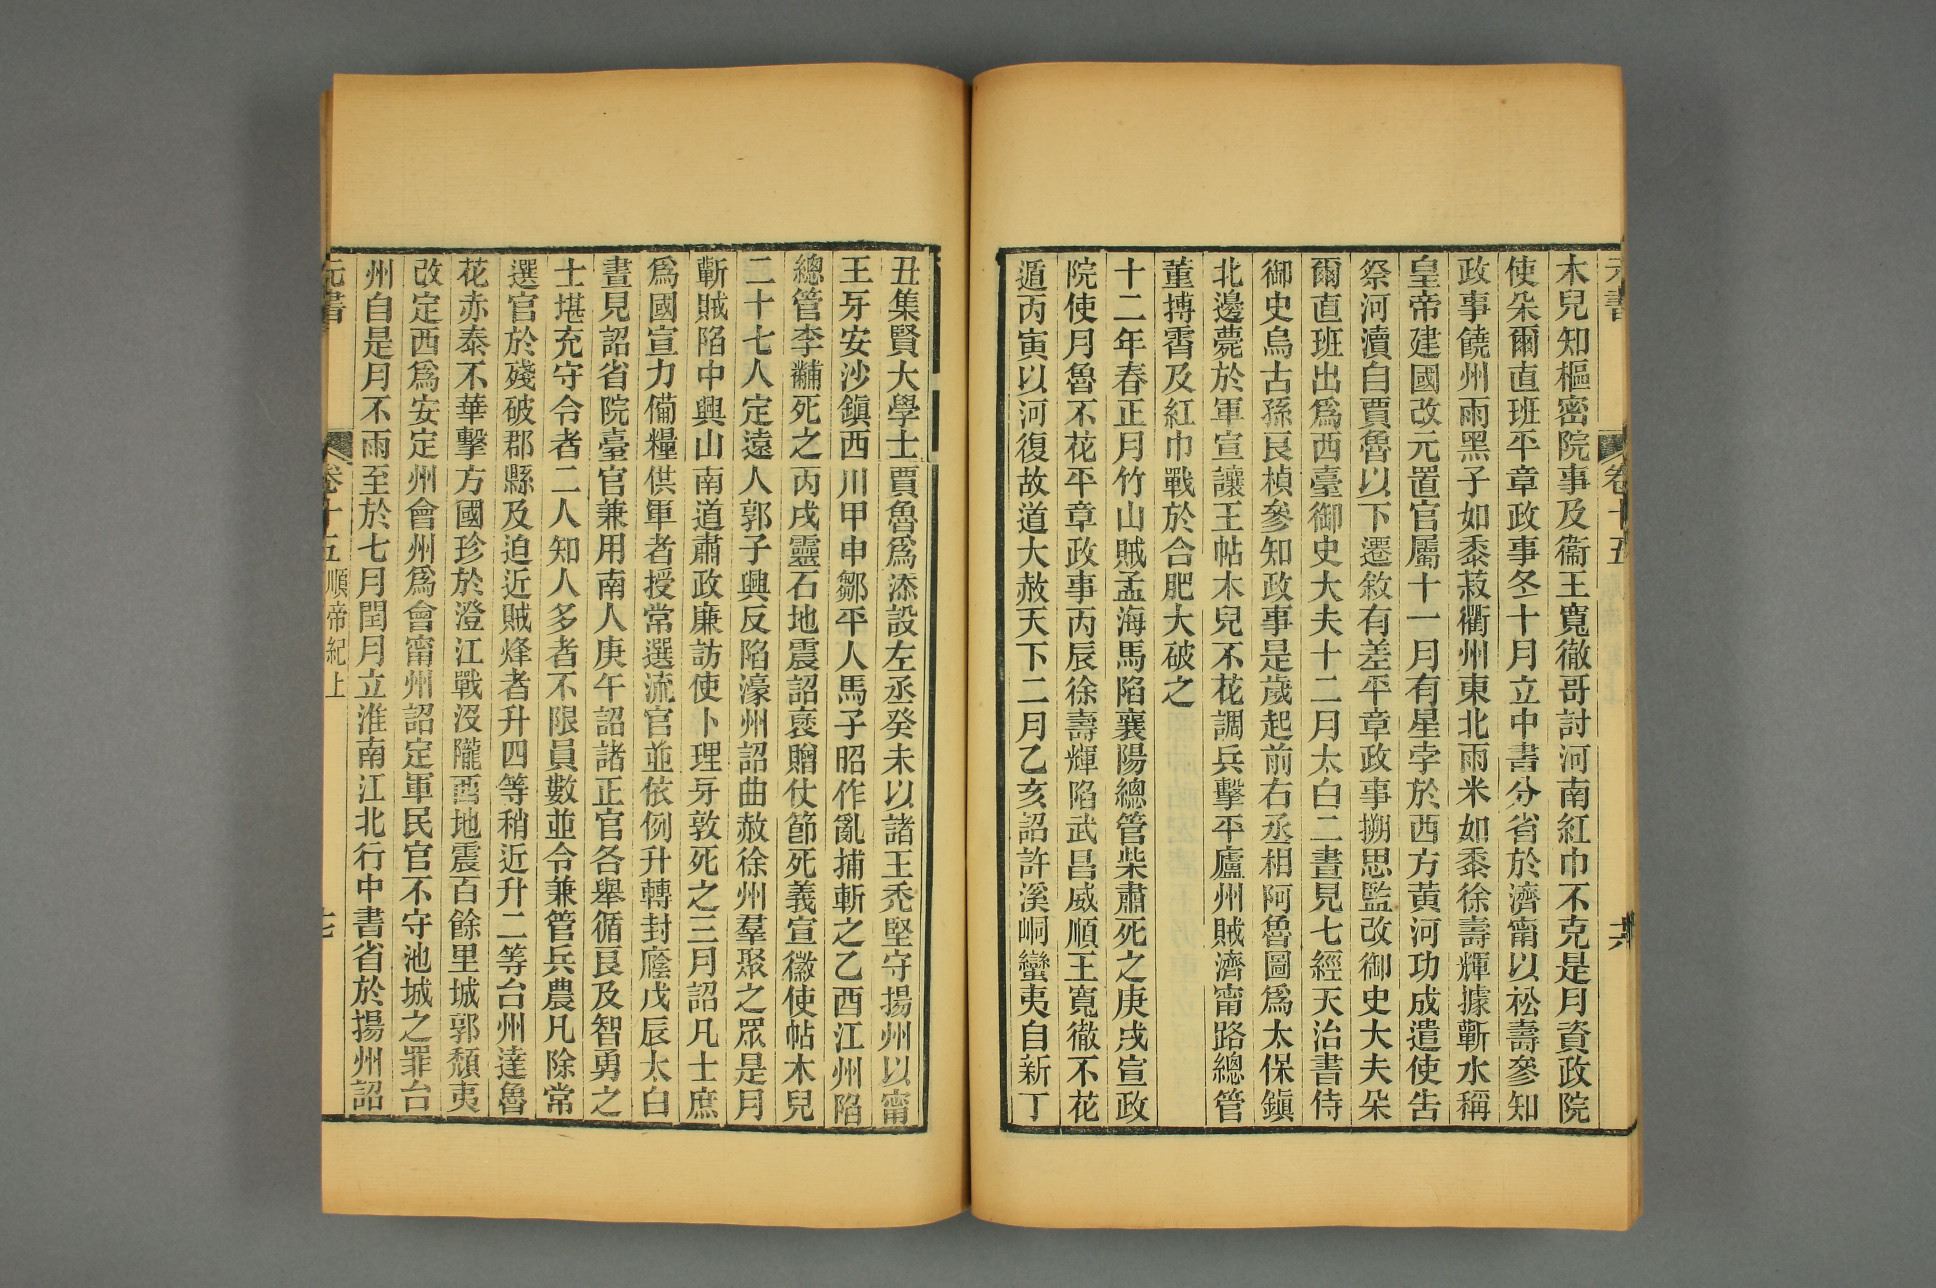 元書
卷十五
六
木兒知樞密院事及衞王寬徹哥討河南紅巾不克是月資政院
使朵爾直班平章政事冬十月立中書分省於濟甯以松壽參知
政事饒州雨黑子如黍菽衢州東北雨米如黍徐壽輝據蘄水稱
皇帝建國改元置官屬十一月有星孛於西方黃河功成遣使告
祭河瀆自賈魯以下遷敘有差平章政事搠思監改御史大夫朵
爾直班出爲西臺御史大夫十二月太白二晝見七經天治書侍
御史烏古孫良楨參知政事是歲起前右丞相阿魯圖爲太保鎭
北邊薨於軍宣讓王帖木兒不花調兵擊平廬州賊濟甯路總管
董搏霄及紅巾戰於合肥大破之
十二年春正月竹山賊孟海馬陷襄陽總管柴肅死之庚戌宣政
院使月魯不花平章政事丙辰徐壽輝陷武昌威順王寬徹不花
遁丙寅以河復故道大赦天下二月乙亥詔許溪峒蠻夷自新丁
丑集賢大學士賈魯爲添設左丞癸未以諸王禿堅守揚州以甯
王牙安沙鎭西川甲申鄒平人馬子昭作亂捕斬之乙酉江州陷
總管李黼死之丙戌靈石地震詔褒贈仗節死義宣徽使帖木兒
二十七人定遠人郭子興反陷濠州詔曲赦徐州羣聚之眾是月
蘄賊陷中興山南道肅政廉訪使卜理牙敦死之三月詔凡士庶
爲國宣力備糧供軍者授常選流官並依例升轉封廕戊辰太白
晝見詔省院臺官兼用南人庚午詔諸正官各舉循良及智勇之
士堪充守令者二人知人多者不限員數並令兼管兵農凡除常
選官於殘破郡縣及迫近賊烽者升四等稍近升二等台州達魯
花赤泰不華擊方國珍於澄江戰沒隴西地震百餘里城郭頹夷
改定西爲安定州會州爲會甯州詔定軍民官不守池城之罪台
州自是月不雨至於七月閏月立淮南江北行中書省於揚州詔
元書
卷十五 順帝紀上
七